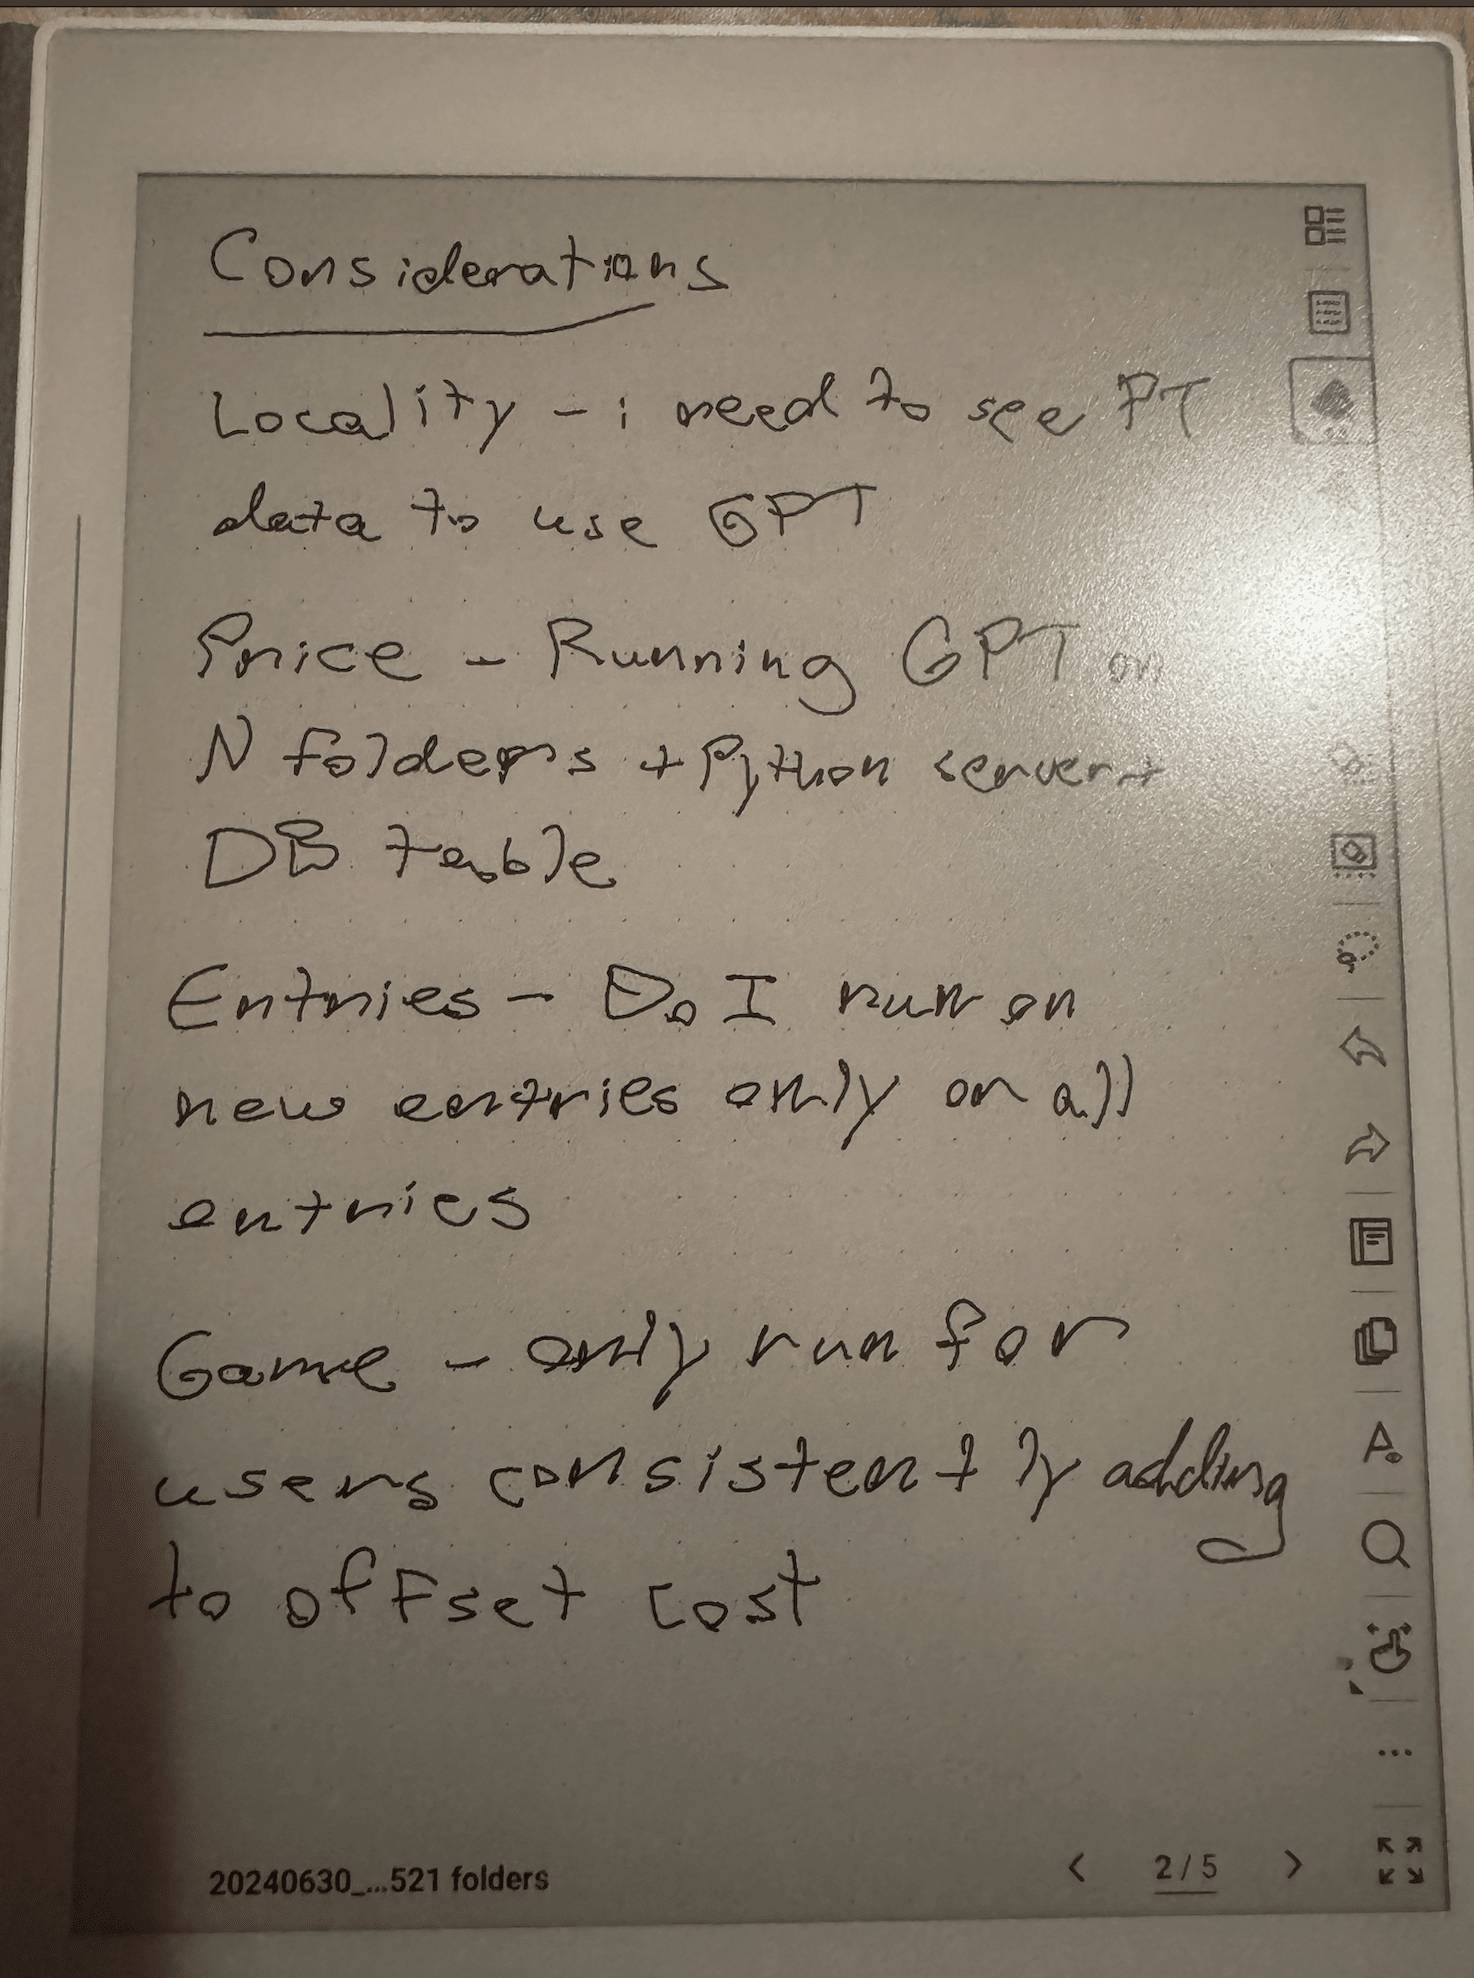 Considerations
Locality - i need to see PT
data to use GPT
Price - Running GPT on
N folders + Python server +
DB table
Entries - Do I run on
new entries only or all
entries
Game - only run for
users consistently adding
to offset cost
20240630_...521 folders
< 2/5 >